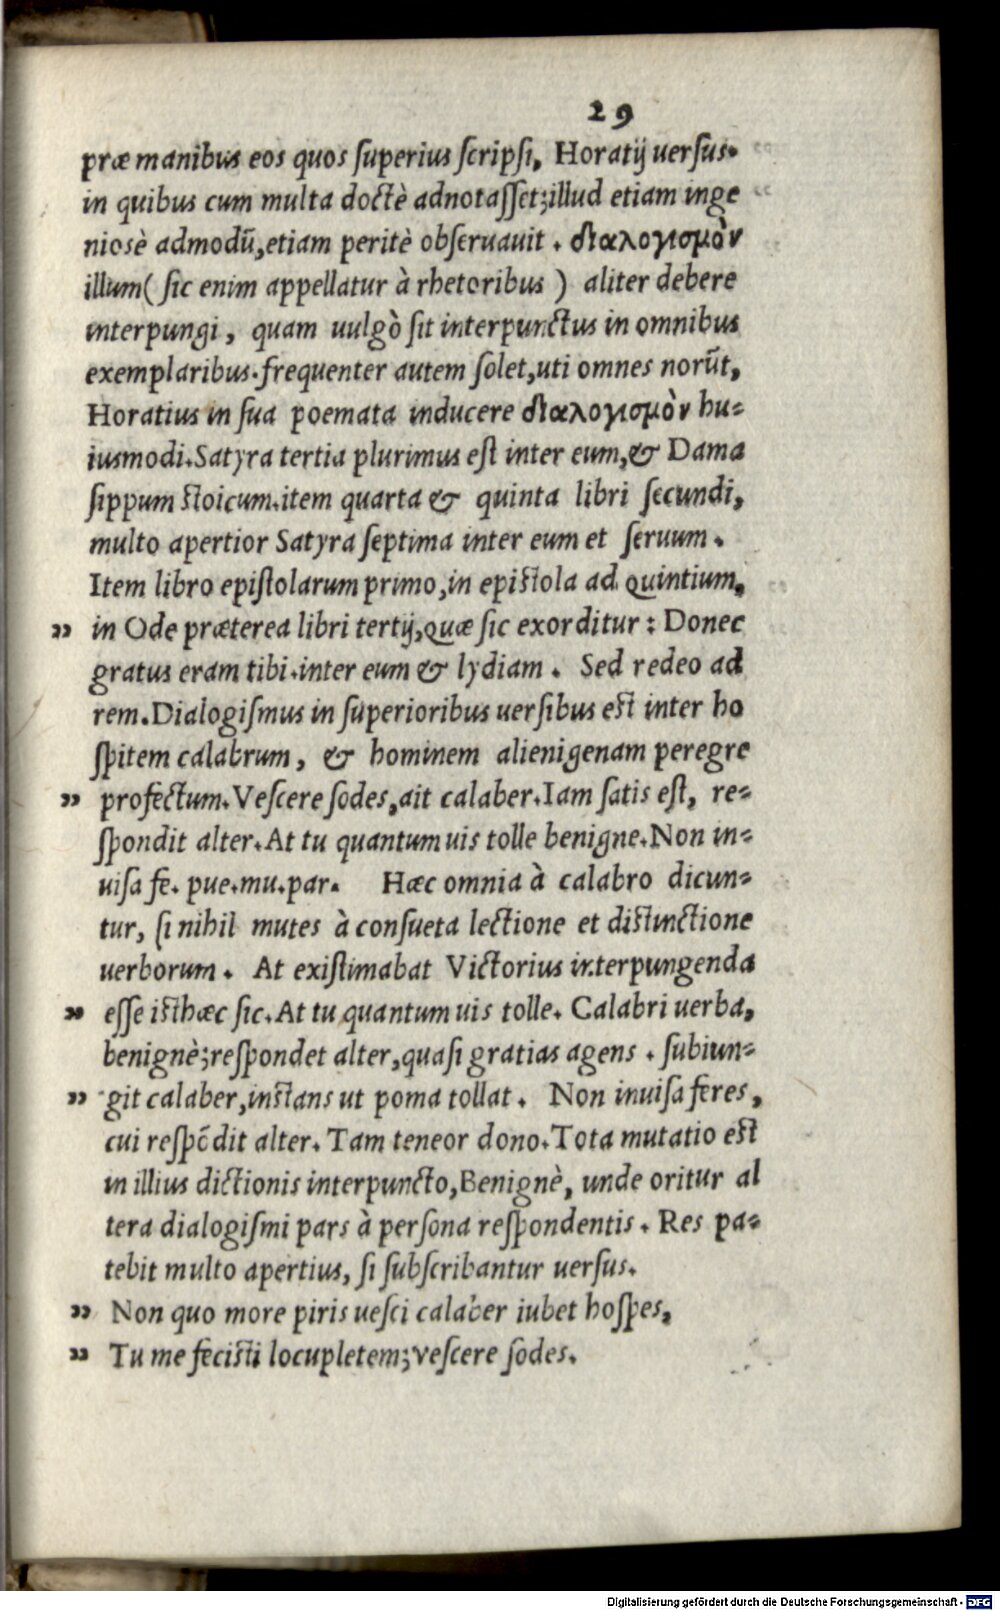 29
præ manibus eos quos ſuperius ſcripſi, Horatij uerſus.
in quibus cum multa doctè adnotaſſet; illud etiam inge
niosè admodũ, etiam peritè obſeruauit. διαλογισμὸν
illum (ſic enim appellatur à rhetoribus) aliter debere
interpungi, quam uulgò ſit interpunctus in omnibus
exemplaribus. frequenter autem ſolet, uti omnes norũt,
Horatius in ſua poemata inducere διαλογισμὸν hu=
iusmodi. Satyra tertia plurimus eſt inter eum, & Dama
ſippum ſtoicum. item quarta & quinta libri ſecundi,
multo apertior Satyra ſeptima inter eum et ſeruum.
Item libro epiſtolarum primo, in epiſtola ad Quintium,
" in Ode præterea libri tertij, Quæ ſic exorditur: Donec
gratus eram tibi. inter eum & lydiam. Sed redeo ad
rem. Dialogiſmus in ſuperioribus uerſibus eſt inter ho
ſpitem calabrum, & hominem alienigenam peregre
" profectum. Veſcere ſodes, ait calaber. Iam ſatis eſt, re=
ſpondit alter. At tu quantum uis tolle benigne. Non in=
uiſa fe. pue. mu. par. Hæc omnia à calabro dicun=
tur, ſi nihil mutes à conſueta lectione et diſtinctione
uerborum. At exiſtimabat Victorius interpungenda
" eſſe iſthæc ſic. At tu quantum uis tolle. Calabri uerba,
benignè; reſpondet alter, quaſi gratias agens. ſubiun=
" git calaber, inſtans ut poma tollat. Non inuiſa feres,
cui reſpõdit alter. Tam teneor dono. Tota mutatio eſt
in illius dictionis interpuncto, Benignè, unde oritur al
tera dialogiſmi pars à perſona reſpondentis. Res pa=
tebit multo apertius, ſi ſubſcribantur uerſus.
" Non quo more piris ueſci calaber iubet hoſpes,
" Tu me feciſti locupletem; veſcere ſodes.
Digitalisierung gefördert durch die Deutsche Forschungsgemeinschaft - DFG